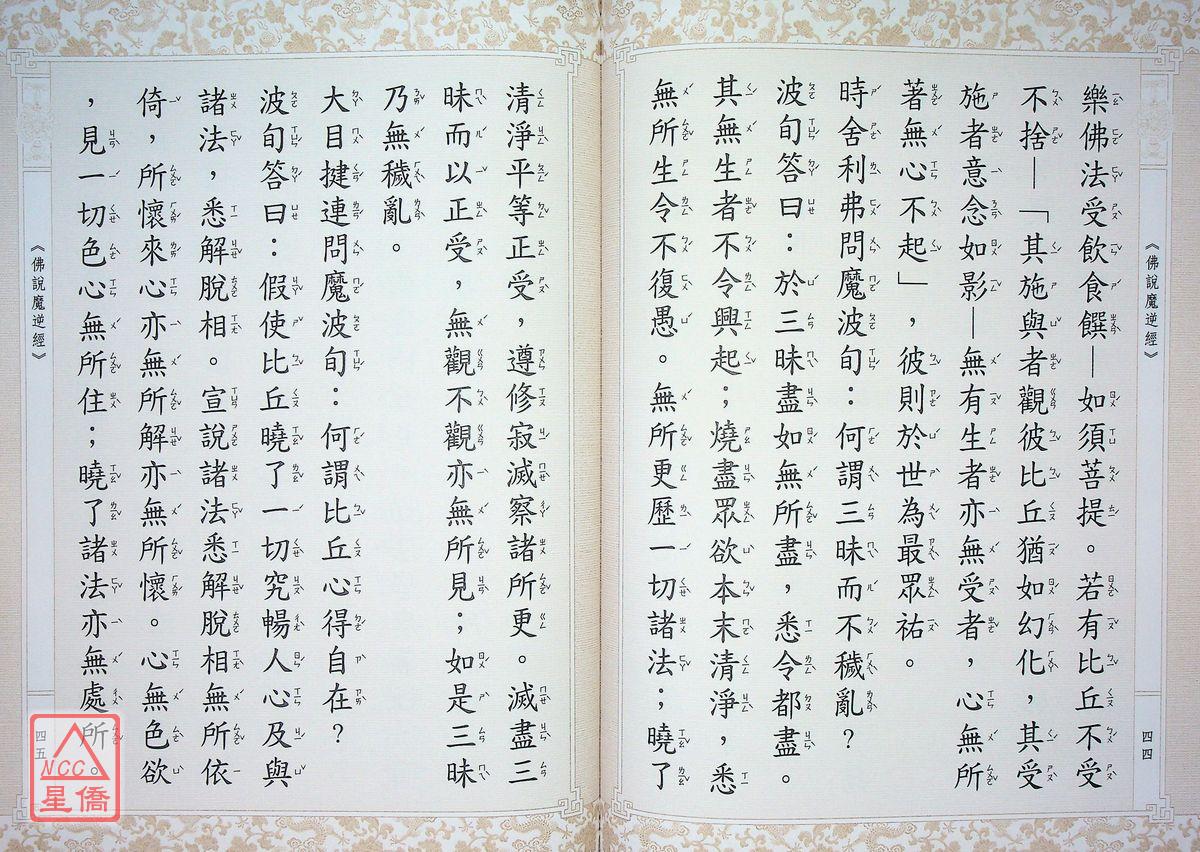 《佛說魔逆經》
四四
樂佛法受飲食饌—如須菩提。若有比丘不受
不捨—「其施與者觀彼比丘猶如幻化，其受
施者意念如影—無有生者亦無受者，心無所
著無心不起」，彼則於世為最眾祐。
時舍利弗問魔波旬：何謂三昧而不穢亂？
波旬答曰：於三昧盡如無所盡，悉令都盡。
其無生者不令興起；燒盡眾欲本末清淨，悉
無所生令不復愚。無所更歷一切諸法；曉了
清淨平等正受，遵修寂滅察諸所更。滅盡三
昧而以正受，無觀不觀亦無所見；如是三昧
乃無穢亂。
大目揵連問魔波旬：何謂比丘心得自在？
波旬答曰：假使比丘曉了一切究暢人心及與
諸法，悉解脫相。宣說諸法悉解脫相無所依
倚，所懷來心亦無所解亦無所懷。心無色欲
，見一切色心無所住；曉了諸法亦無處所。
《佛說魔逆經》
四五
NCC
星僑